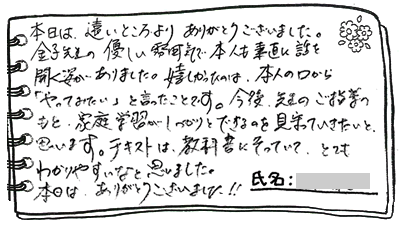 本日は、遠いところより ありがとうございました。
金子先生の 優しい雰囲気で 本人も素直に 話を
聞く姿がありました。嬉しかったのは、本人の口から
「やってみたい」と言ったことです。今後、先生の ご指導の
もと、家庭学習がしっかりとできるのを見守っていきたいと、
思います。テキストは、教科書にそっていて、とても
わかりやすいなと 思いました。
本日は、ありがとうございました!!
氏名: